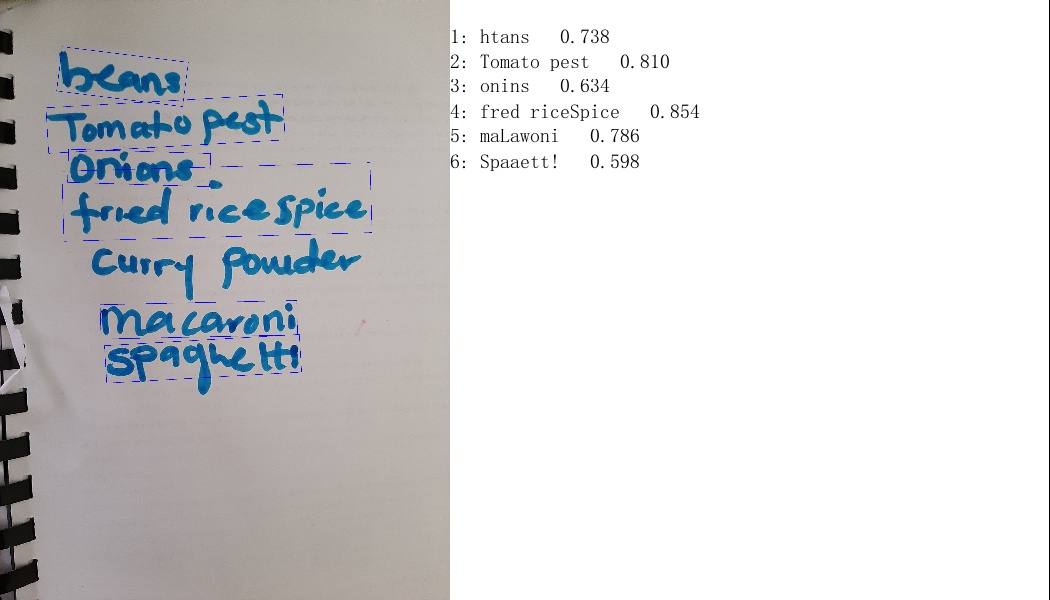 beans
Tomato pest
Onions
fried rice spice
curry powder
macaroni
spaghetti
1: htans 0.738
2: Tomato pest 0.810
3: onins 0.634
4: fred riceSpice 0.854
5: maLawoni 0.786
6: Spaaett! 0.598